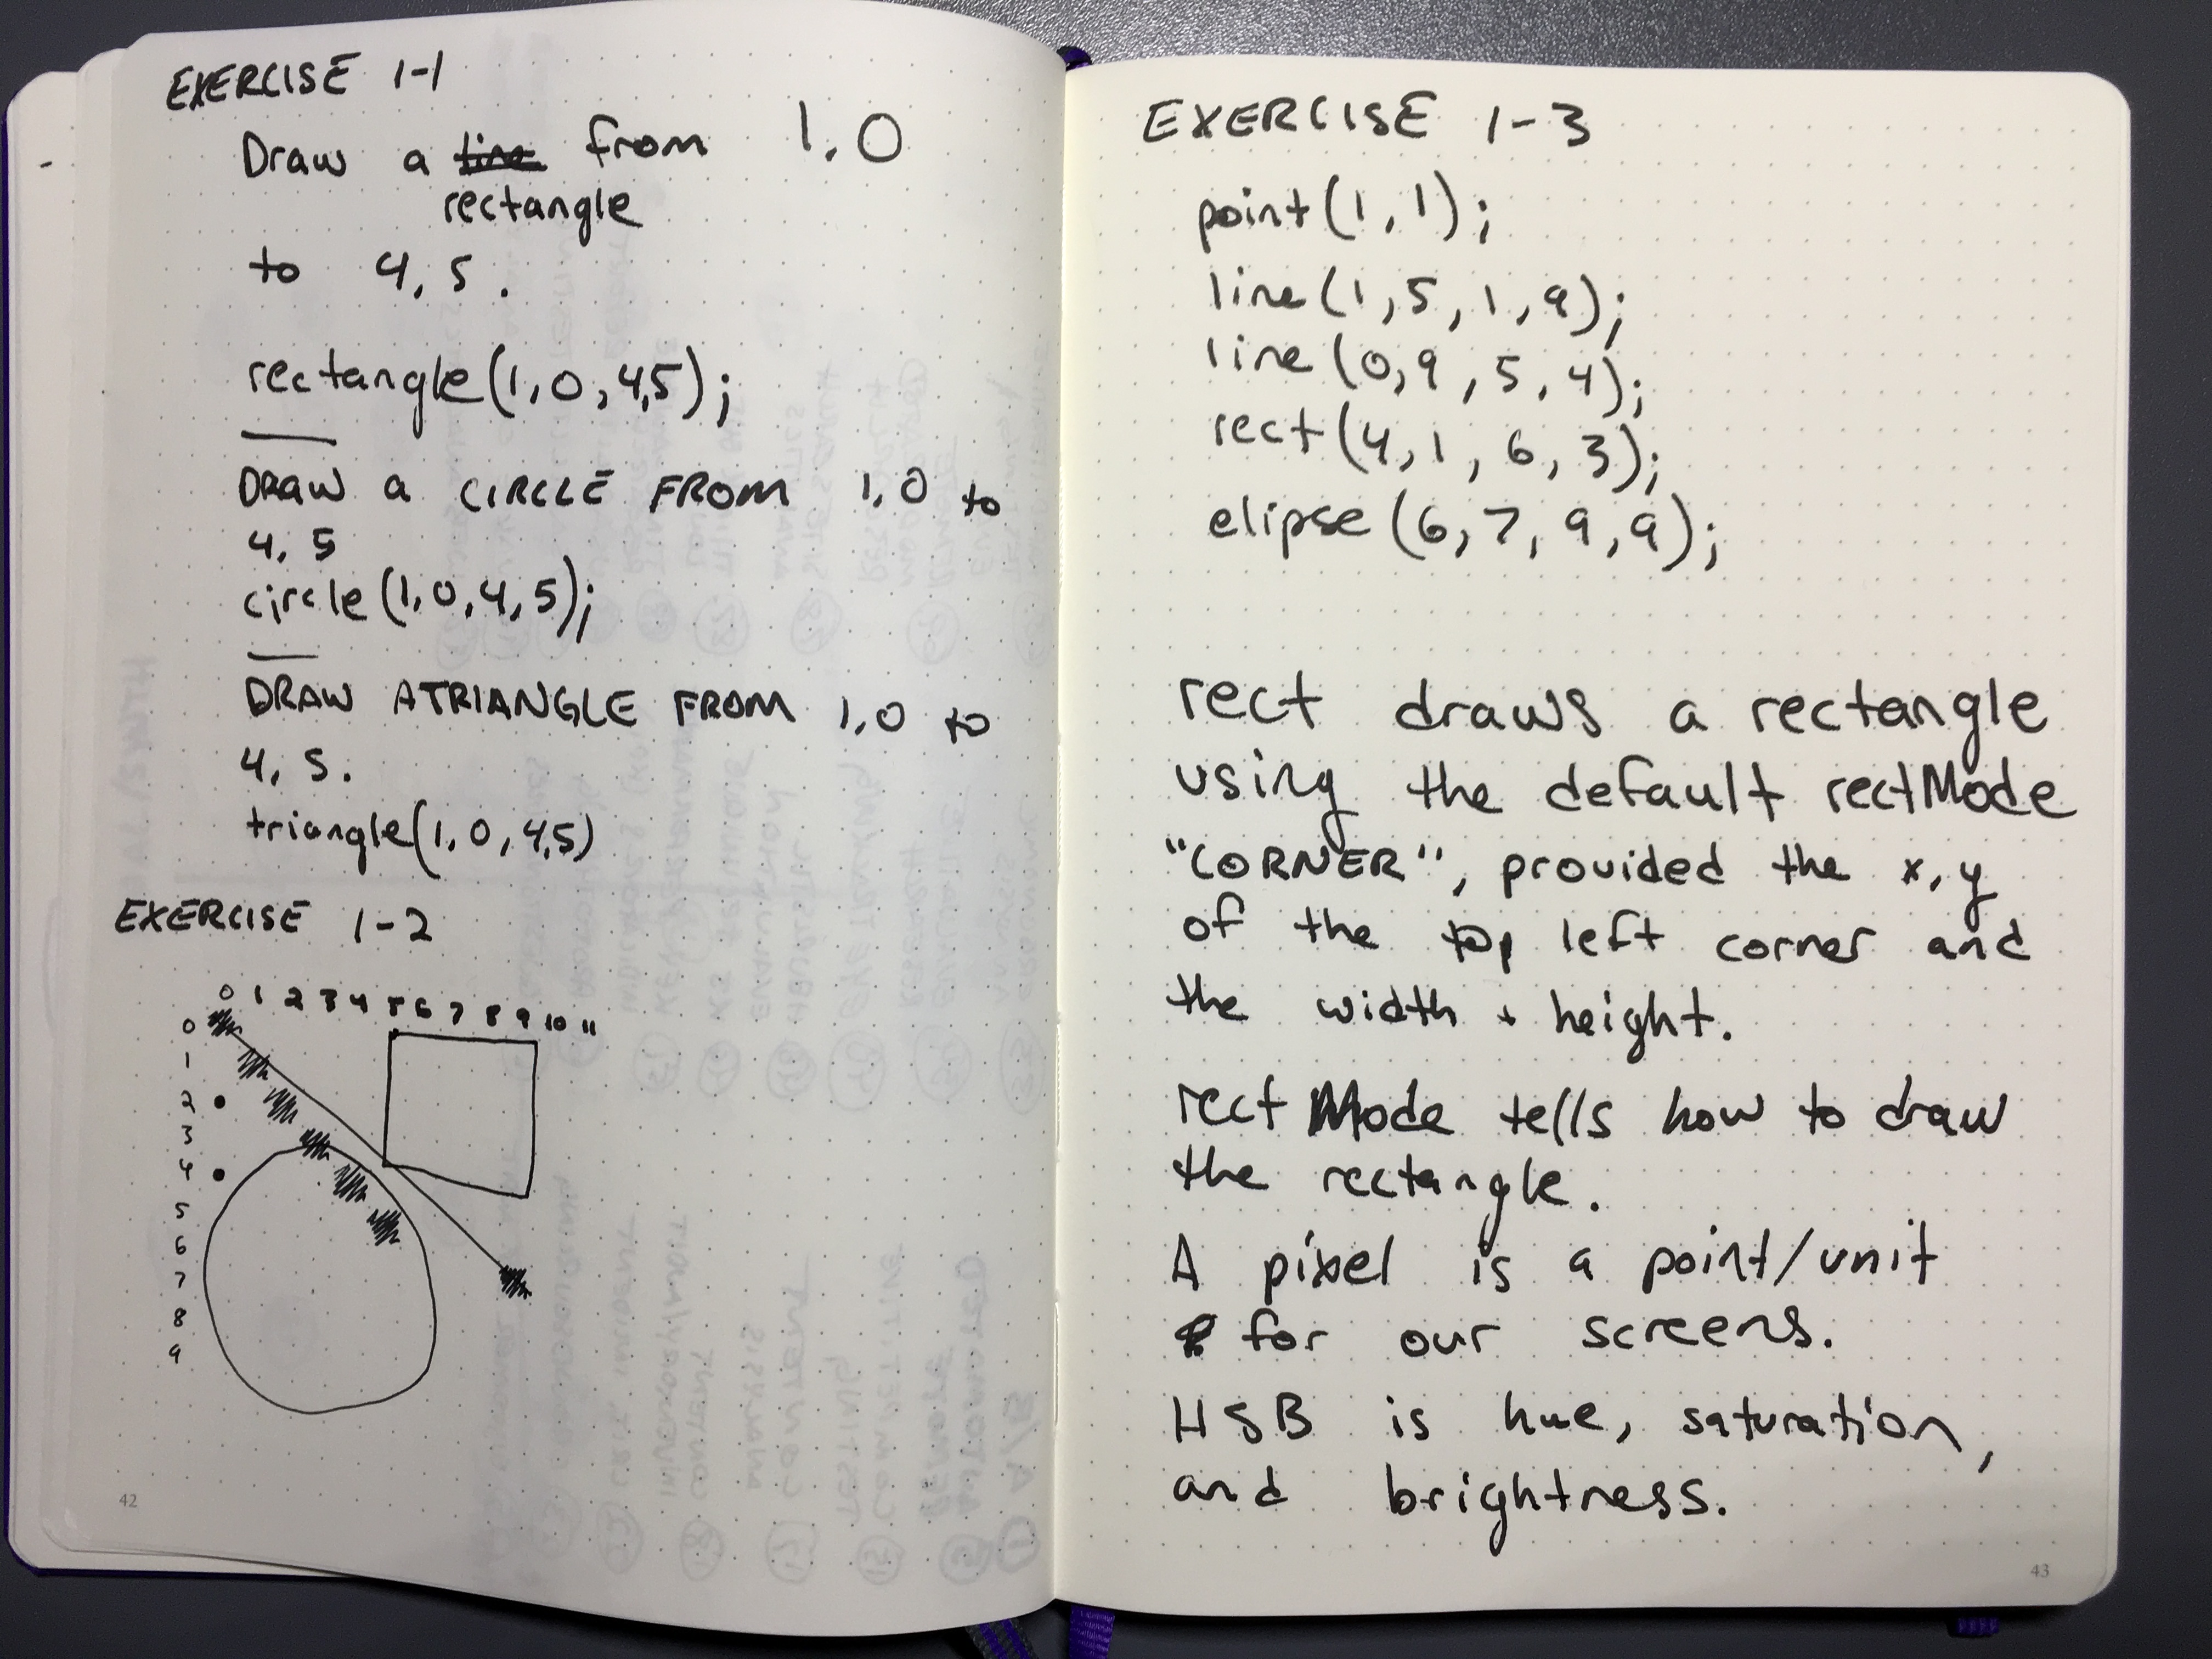 EXERCISE 1-1
Draw a line from 1,0
rectangle
to 4,5.
rectangle(1,0,4,5);
DRAW a CIRCLE FROM 1,0 to
4,5
circle(1,0,4,5);
DRAW A TRIANGLE FROM 1,0 to
4,5.
triangle(1,0,4,5)
EXERCISE 1-2
0 1 2 3 4 5 6 7 8 9 10 11
0
1
2
3
4
5
6
7
8
9
42
EXERCISE 1-3
point(1,1);
line(1,5,1,9);
line(0,9,5,4);
rect(4,1,6,3);
elipse(6,7,9,9);
rect draws a rectangle
using the default rectMode
"CORNER", provided the x,y
of the top left corner and
the width + height.
rectMode tells how to draw
the rectangle.
A pixel is a point/unit
for our screens.
HSB is hue, saturation,
and brightness.
43